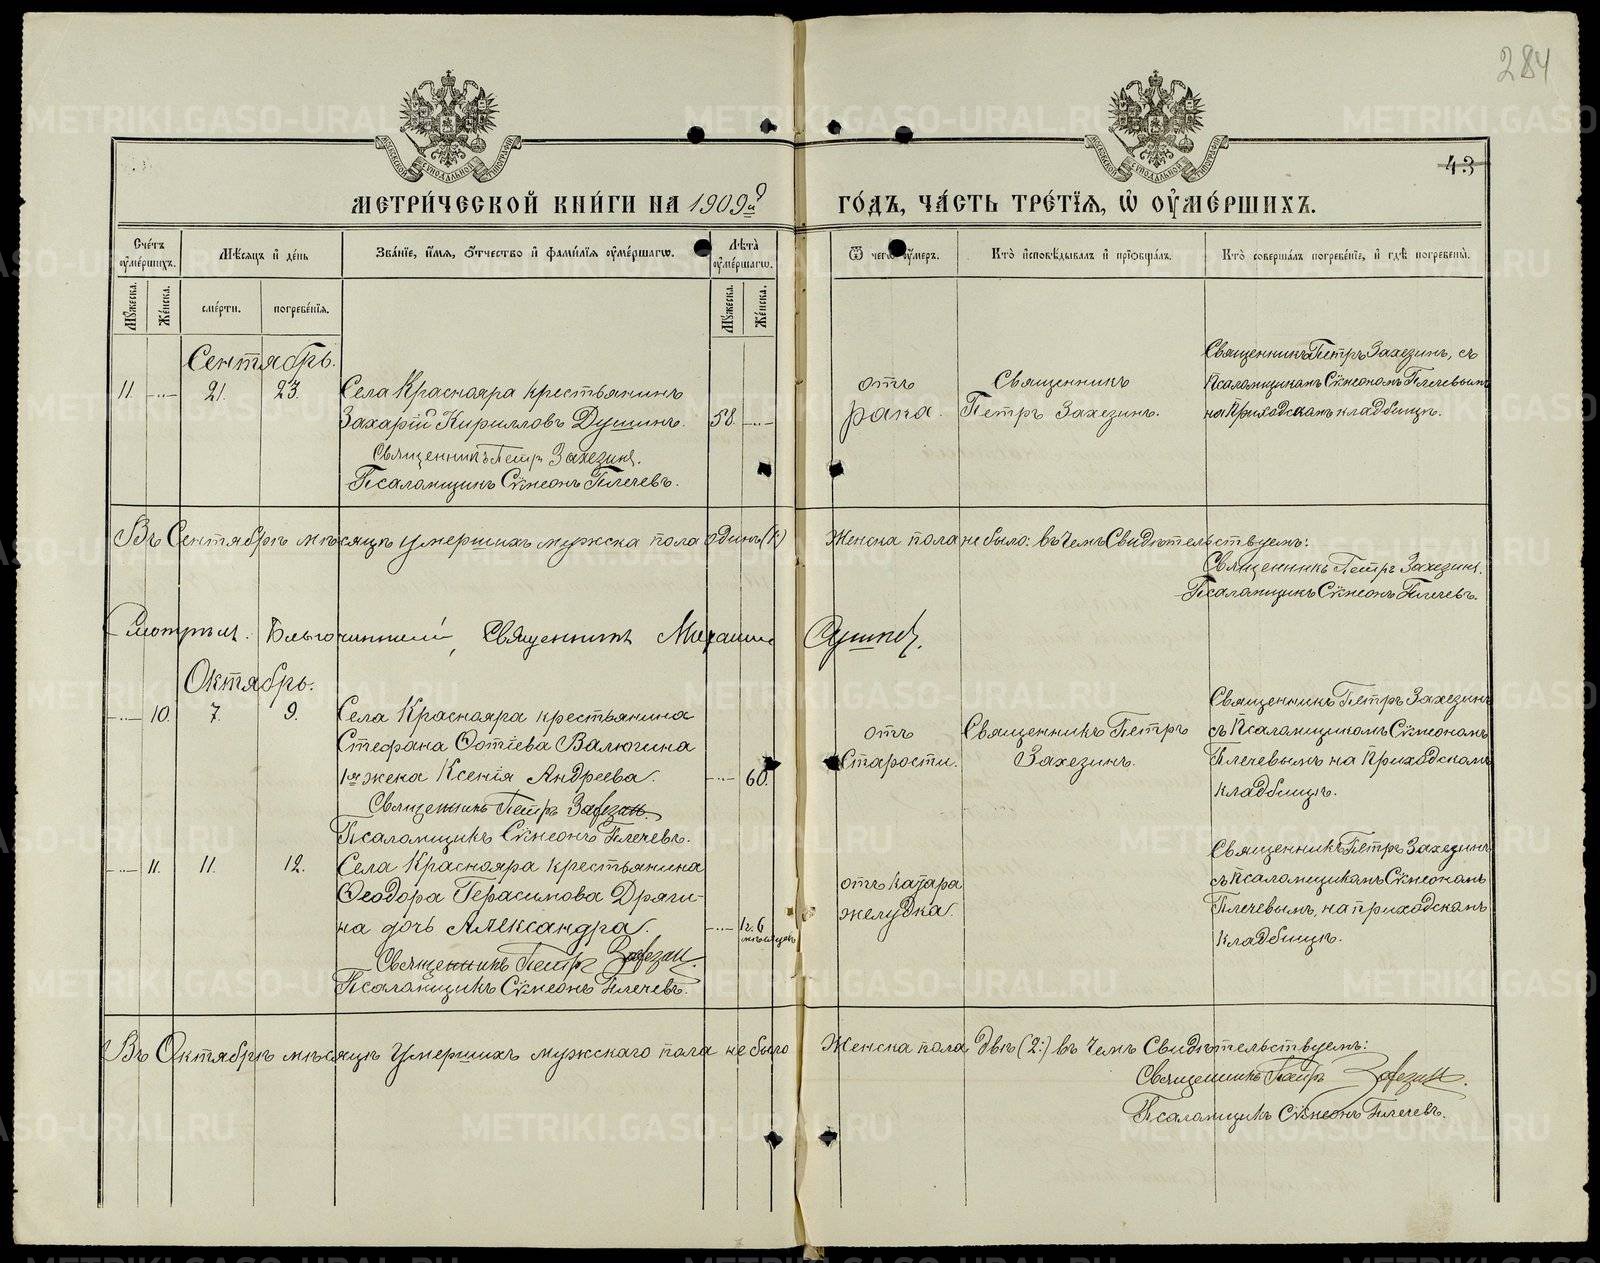 284
43
МЕТРИ́ЧЕСКОЙ КНИ́ГИ НА 1909й ГО́ДЪ, ЧА́СТЬ ТРЕ́ТЇЯ, Ѽ ОУ҆МЕ́РШИХЪ.
Сче́тъ оу҆ме́ршихъ.
Мѣ́сяцъ и҆ де́нь
Зва́нїе, и҆́мя, ѻ҆́тчество и҆ фами́лїя оу҆ме́ршагѡ.
Лѣ́та оу҆ме́ршагѡ.
Ѿ чегѡ̀ оу҆́меръ.
Кто̀ и҆сповѣ́дывалъ и҆ прїѻбща́лъ.
Кто̀ соверша́лъ погребе́нїе, и҆ гдѣ̀ погребены̀.
Му́жеска.
Же́нска.
сме́рти.
погребе́нїя.
Му́жеска.
Же́нска.
Сентябрь.
11. 21. 23.
Села Краснояра крестьянинъ
Захарій Кирилловъ Душинъ. 58.
Священникъ Петръ Захезинъ.
Псаломщикъ Сѵмеонъ Плечевъ.
отъ
рака.
Священникъ
Петръ Захезинъ.
Священникъ Петръ Захезинъ, съ
Псаломщикомъ Сѵмеономъ Плечевымъ
на Приходскомъ кладбищѣ.
Въ Сентябрѣ мѣсяцѣ умершихъ мужска пола одинъ (1) Женска пола не было: въ чемъ Свидѣтельствуемъ:
Священникъ Петръ Захезинъ.
Псаломщикъ Сѵмеонъ Плечевъ.
Смотрѣлъ. Благочинный, Священникъ Михаилъ
Октябрь.
10. 7. 9.
Села Краснояра крестьянина
Стефана Фотіева Валюгина
1я жена Ксенія Андреева. 60.
Священникъ Петръ Захезин.
Псаломщикъ Сѵмеонъ Плечевъ.
отъ
Старости.
Священникъ Петръ
Захезинъ.
Священникъ Петръ Захезинъ
съ Псаломщикомъ Сѵмеономъ
Плечевымъ на Приходскомъ
кладбищѣ.
11. 11. 12.
Села Краснояра крестьянина
Ѳеодора Герасимова Драги-
на дочь Александра. 1г. 6 мѣсяцевъ
Священникъ Петръ Захезин.
Псаломщикъ Сѵмеонъ Плечевъ.
отъ катара
желудка.
Священникъ Петръ Захезинъ
съ Псаломщикомъ Сѵмеономъ
Плечевымъ, на приходскомъ
кладбищѣ.
Въ Октябрѣ мѣсяцѣ умершихъ мужскаго пола не было Женска пола двѣ (2:) въ чемъ Свидѣтельствуемъ:
Священникъ Петръ Захезин.
Псаломщикъ Сѵмеонъ Плечевъ.
METRIKI.GASO-URAL.RU